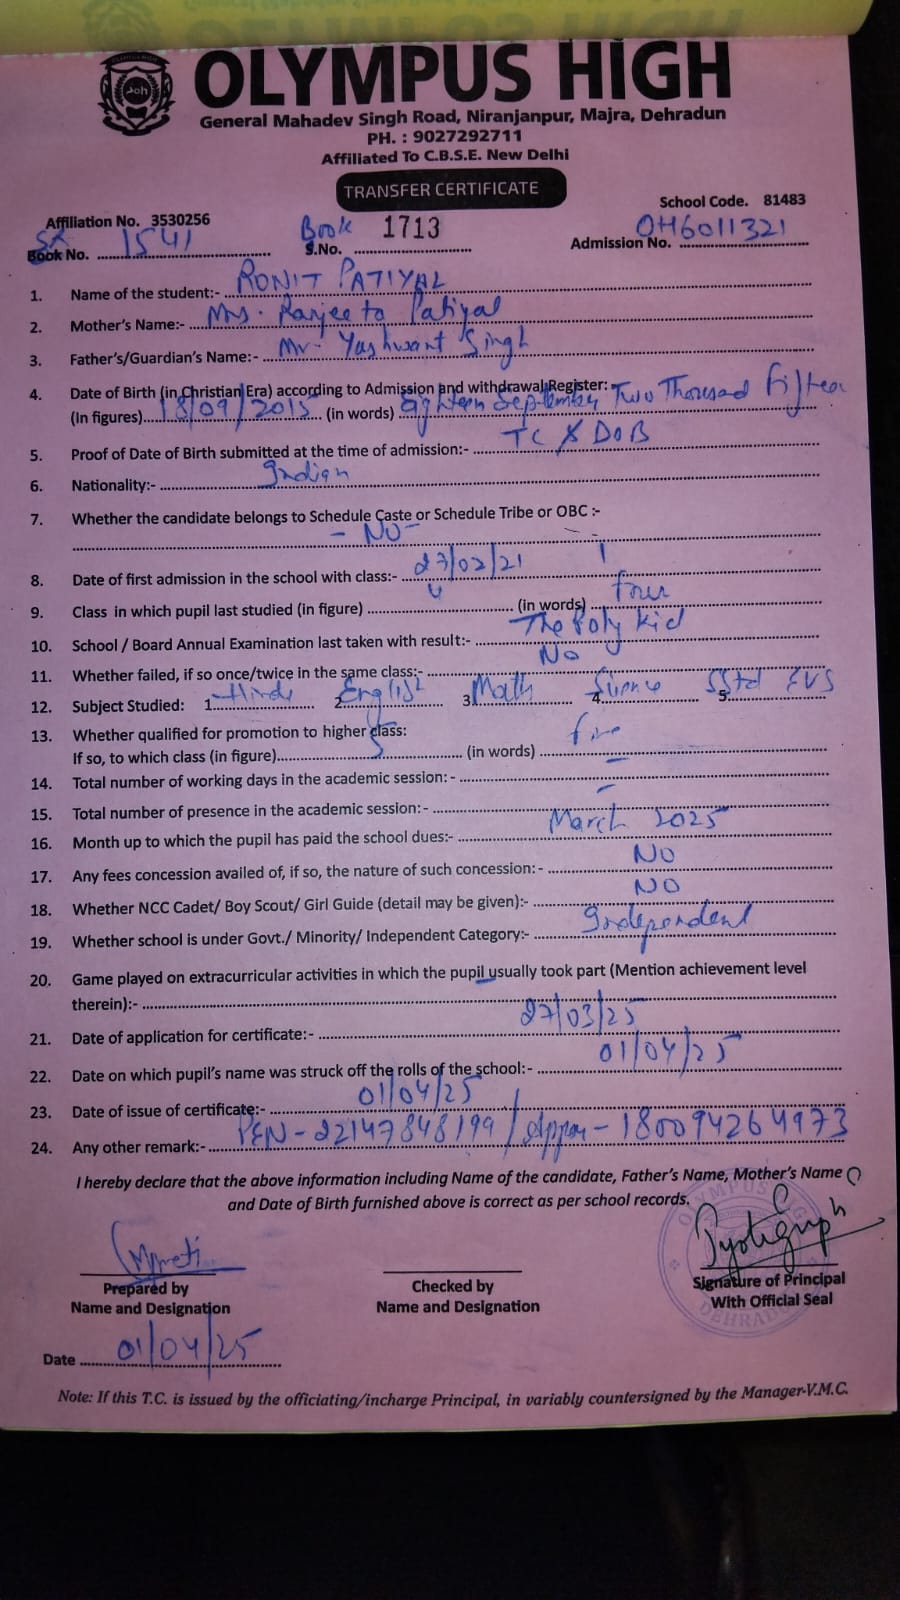 OLYMPUS HIGH
General Mahadev Singh Road, Niranjanpur, Majra, Dehradun
PH. : 9027292711
Affiliated To C.B.S.E. New Delhi
TRANSFER CERTIFICATE
School Code. 81483
Affiliation No. 3530256
Book No. 1541 Book S.No. 1713 Admission No. OH6011321
1. Name of the student:- RONIT PATIYAL
2. Mother's Name:- Mrs. Ranjeeta Patiyal
3. Father's/Guardian's Name:- Mr. Yashwant Singh
4. Date of Birth (in Christian Era) according to Admission and withdrawal Register:-
(In figures) 18/09/2015 (in words) eighteen September Two Thousand Fifteen
5. Proof of Date of Birth submitted at the time of admission:- TC & DOB
6. Nationality:- Indian
7. Whether the candidate belongs to Schedule Caste or Schedule Tribe or OBC :-
- NO -
8. Date of first admission in the school with class:- 27/02/21 I
9. Class in which pupil last studied (in figure) 4 (in words) four
10. School / Board Annual Examination last taken with result:- The Poly Kid
11. Whether failed, if so once/twice in the same class:- No
12. Subject Studied: 1 Hindi 2 English 3 Math 4 Science 5 SStd EVS
13. Whether qualified for promotion to higher class:
If so, to which class (in figure) 5 (in words) five
14. Total number of working days in the academic session: - –
15. Total number of presence in the academic session:- –
16. Month up to which the pupil has paid the school dues:- March 2025
17. Any fees concession availed of, if so, the nature of such concession: - NO
18. Whether NCC Cadet/ Boy Scout/ Girl Guide (detail may be given):- NO
19. Whether school is under Govt./ Minority/ Independent Category:- Independent
20. Game played on extracurricular activities in which the pupil usually took part (Mention achievement level
therein):-
21. Date of application for certificate:- 27/03/25
22. Date on which pupil's name was struck off the rolls of the school:- 01/04/25
23. Date of issue of certificate:- 01/04/25
24. Any other remark:- PEN - 22147848199 / - 180094264973
I hereby declare that the above information including Name of the candidate, Father's Name, Mother's Name
and Date of Birth furnished above is correct as per school records.
Prepared by
Name and Designation
Checked by
Name and Designation
Signature of Principal
With Official Seal
Date 01/04/25
Note: If this T.C. is issued by the officiating/incharge Principal, in variably countersigned by the Manager-V.M.C.